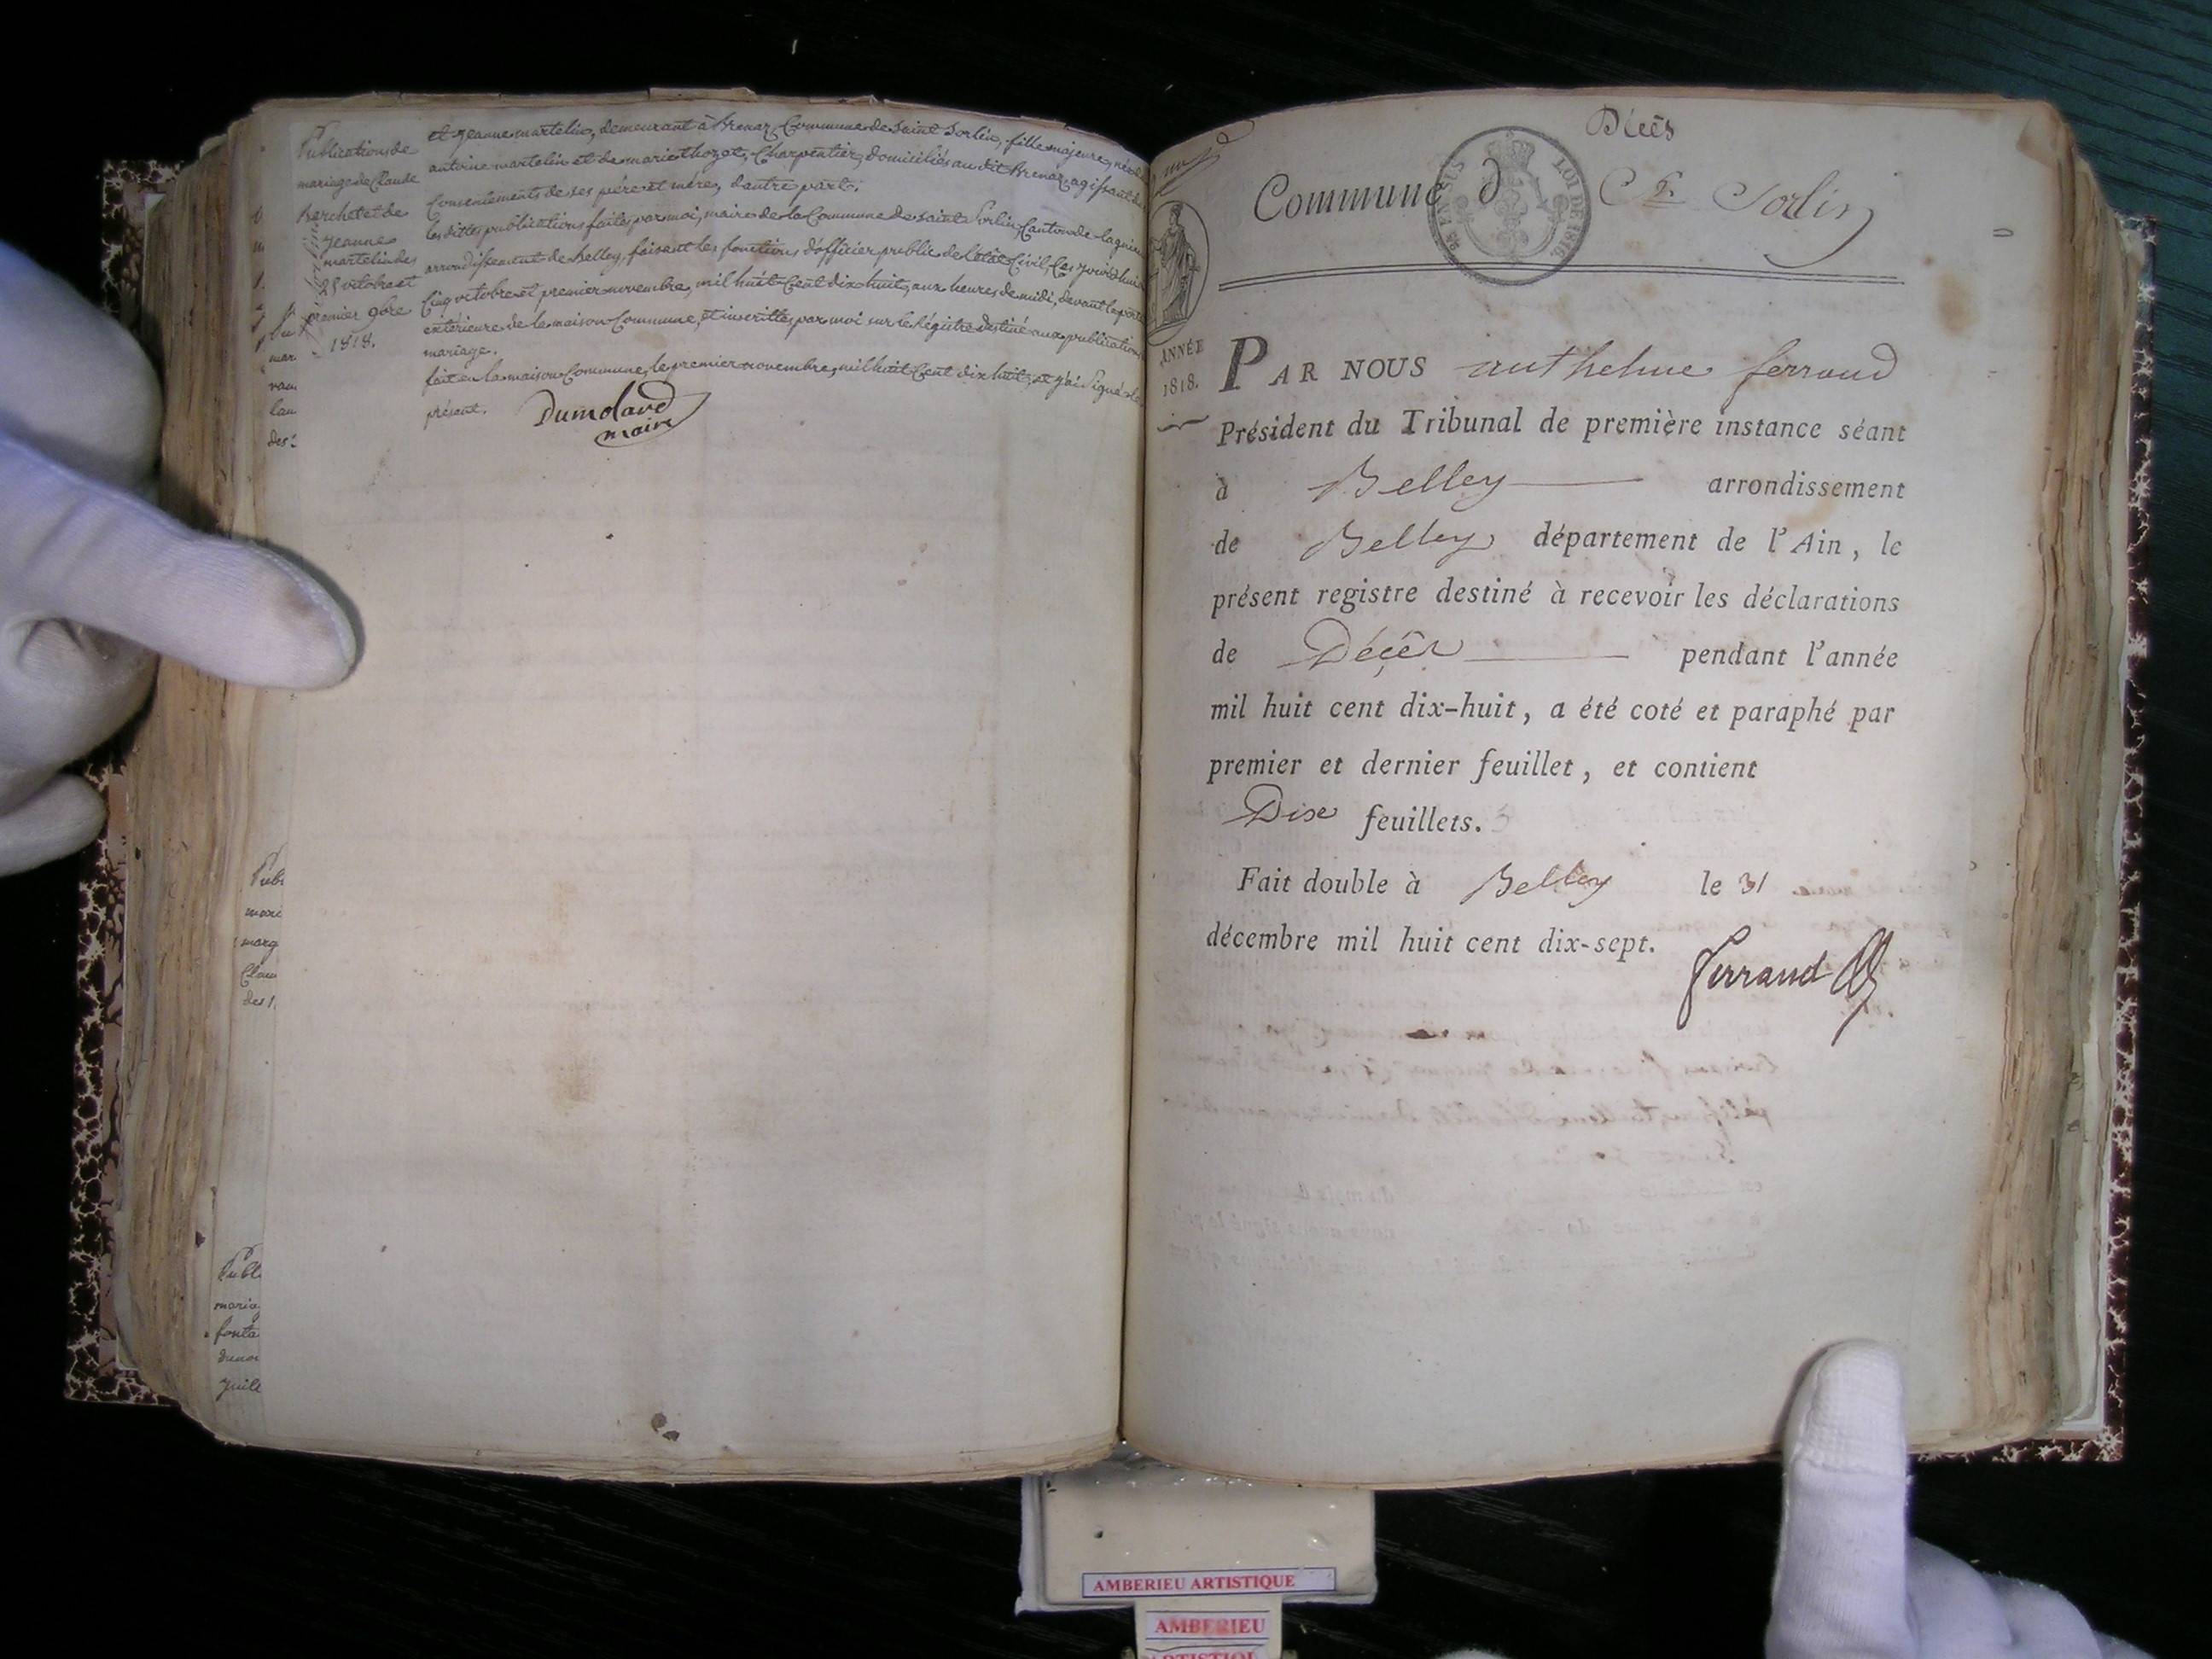 Publications de
mariage de Claude
Berchet et de
Jeanne
martelin des
25 octobre et
premier 9bre
1818.
et jeanne martelin, demeurant à Brenaz Commune de saint Sorlin, fille majeure, née de
antoine martelin et de marie thozet, Charpentier, domiciliés au dit Brenaz, agissant du
Consentements de ses père et mère, dautre part.
les dittes publications faites par moi, maire de la Commune de saint Sorlin, Canton de lagnieu
arrondissement de Belley, faisant les fonctions d'officier public de l'état Civil, les jours
Cinq octobre et premier novembre, mil huit Cent dix huit, aux heures de midi, devant la porte
extérieure de la maison Commune, et inscrittes par moi sur le Régistre destiné aux publications
mariage.
fait en la maison Commune, le premier novembre, mil huit Cent dix huit, et j'ai Signé le
présent.
Dumolard
maire
Publ
mari
marg
Clau
des 1
Publ
mariag
fonta
juile
Décès
Commune d St Sorlin
LOI DE 1816.
ANNÉE
1818.
PAR NOUS anthelme ferrand
Président du Tribunal de première instance séant
à Belley arrondissement
de Belley département de l'Ain, le
présent registre destiné à recevoir les déclarations
de Décès pendant l'année
mil huit cent dix-huit, a été coté et paraphé par
premier et dernier feuillet, et contient
Dix feuillets.
Fait double à Belley le 31
décembre mil huit cent dix-sept.
ferrand
AMBERIEU ARTISTIQUE
AMBERIEU
ARTISTIQUE